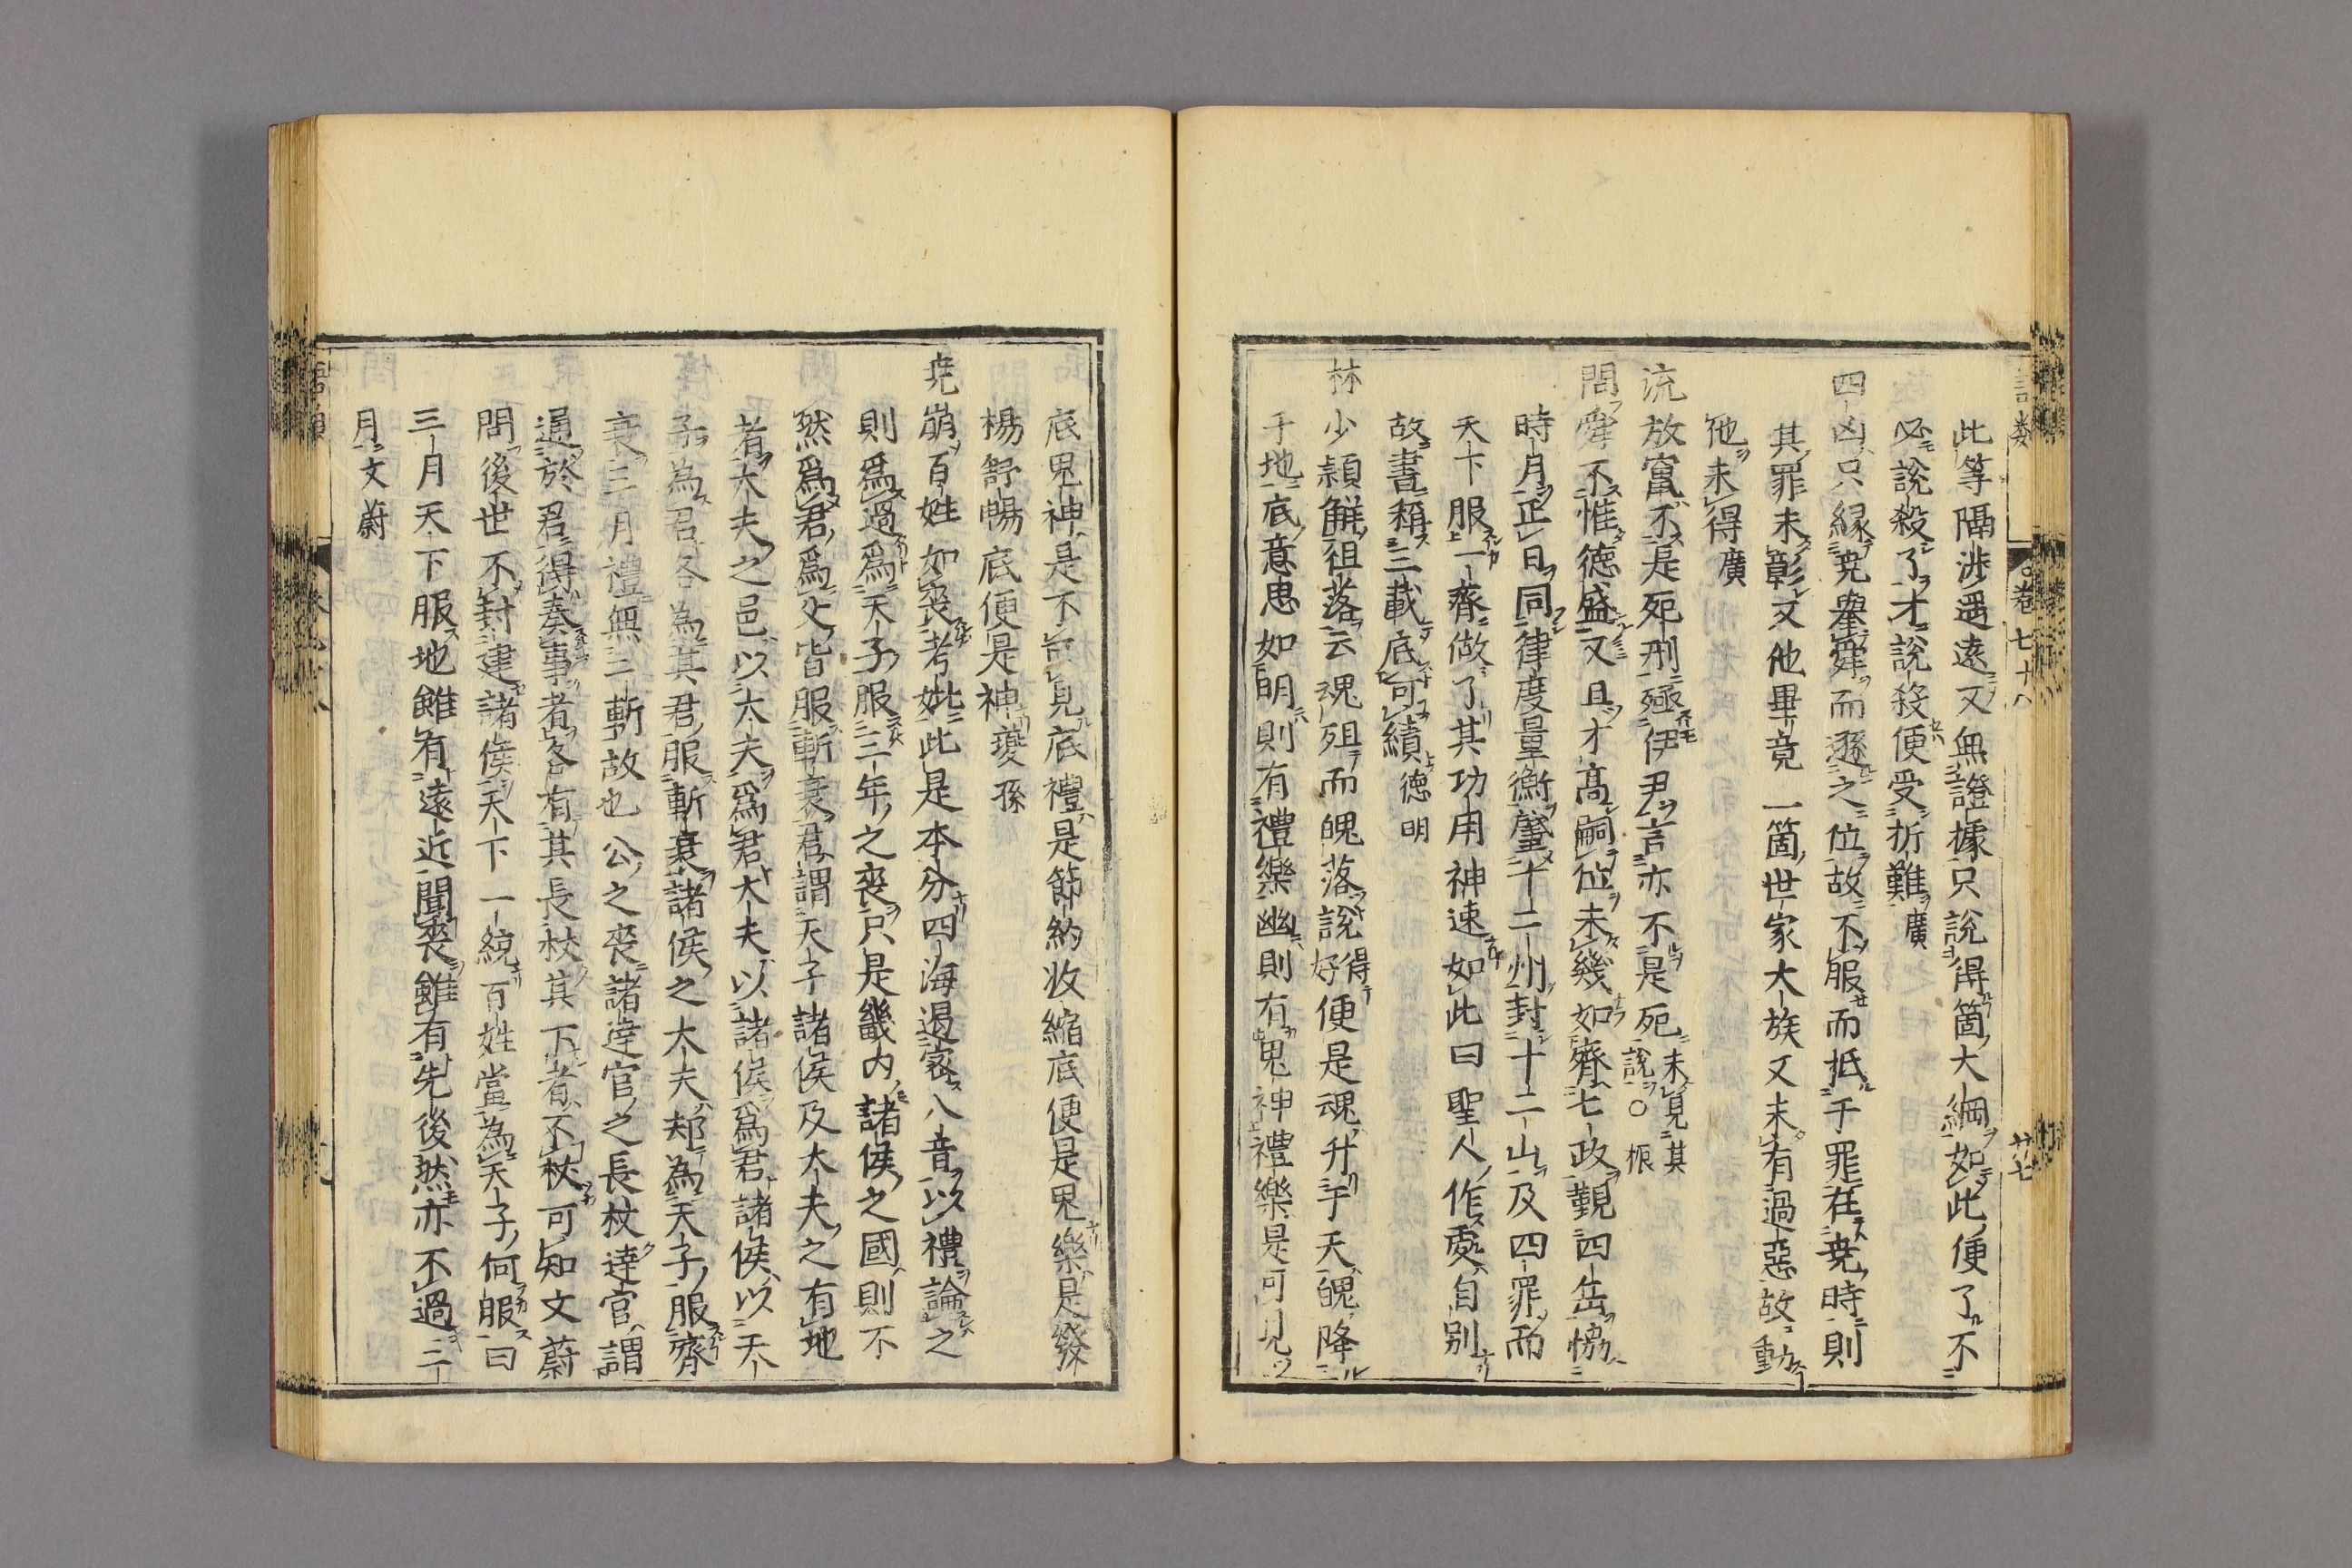 語類
卷七十八
廿七
此等隔涉遥遠又無證據只說得箇大綱如此便了不
必說殺了才說殺便受折難廣
四凶只緣堯舉舜而遜之位故不服而抵于罪在堯時則
其罪未彰又他畢竟一箇世家大族又未有過惡故動
他未得廣
流放竄不是死刑殛伊尹言亦不是死未見其說○振
問舜不惟德盛又且才高嗣位未幾如齊七政覲四岳協
時月正日同律度量衡肇十二州封十二山及四罪而
天下服一齊做了其功用神速如此曰聖人作處自別
故書稱三載底可績德明
林少穎解徂落云魂殂而魄落說得好便是魂升于天魄降
于地底意思如明則有禮樂幽則有鬼神禮樂是可見
底鬼神是不可見底禮是節約收縮底便是鬼樂是發
楊舒暢底便是神夔孫
堯崩百姓如喪考妣此是本分四海遏密八音以禮論之
則爲過爲天子服三年之喪只是畿内諸侯之國則不
然爲君爲父皆服斬衰君謂天子諸侯及大夫之有地
者大夫之邑以大夫爲君大夫以諸侯爲君諸侯以天
子為君各為其君服斬衰諸侯之大夫却為天子服齊
衰三月禮無二斬故也公之喪諸達官之長杖達官謂
通於君得奏事者各有其長杖其下者不杖可知文蔚
問後世不封建諸侯天下一統百姓當為天子何服曰
三月天下服地雖有遠近聞喪雖有先後然亦不過三
月文蔚